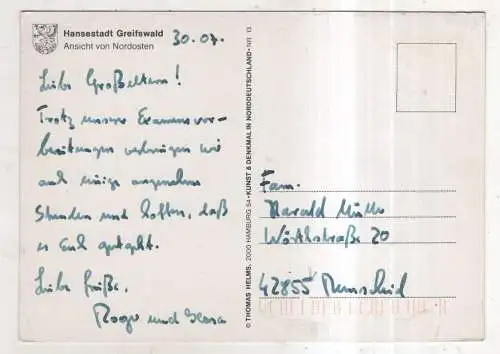 Hansestadt Greifswald
Ansicht von Nordosten
30.07.
Liebe Großeltern!
Trotz unserer Examensvor-
bereitungen verbringen wir
auch einige angenehme
Stunden und hoffen, daß
es Euch gutgeht.
Liebe Grüße,
und
© THOMAS HELMS, 2000 HAMBURG 54 • KUNST & DENKMAL IN NORDDEUTSCHLAND • NR. 13
Fam.
Harald Müller
Wörthstraße 20
42855 Remscheid